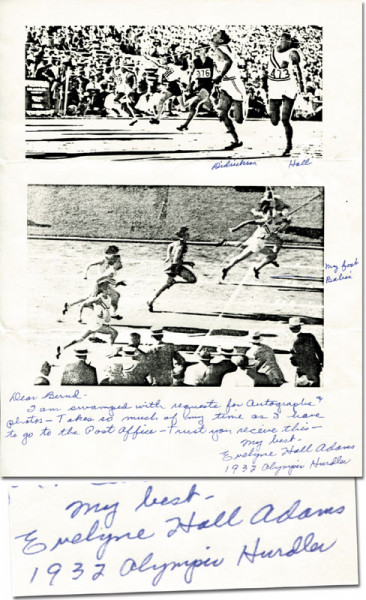 376
Didrickson Hall
My foot
Babe's
Dear Bernd-
I am swamped with requests for Autographs &
photos - Takes so much of my time as I have
to go to the Post Office - Trust you receive this -
My best -
Evelyne Hall Adams
1932 Olympic Hurdler
My best -
Evelyne Hall Adams
1932 Olympic Hurdler